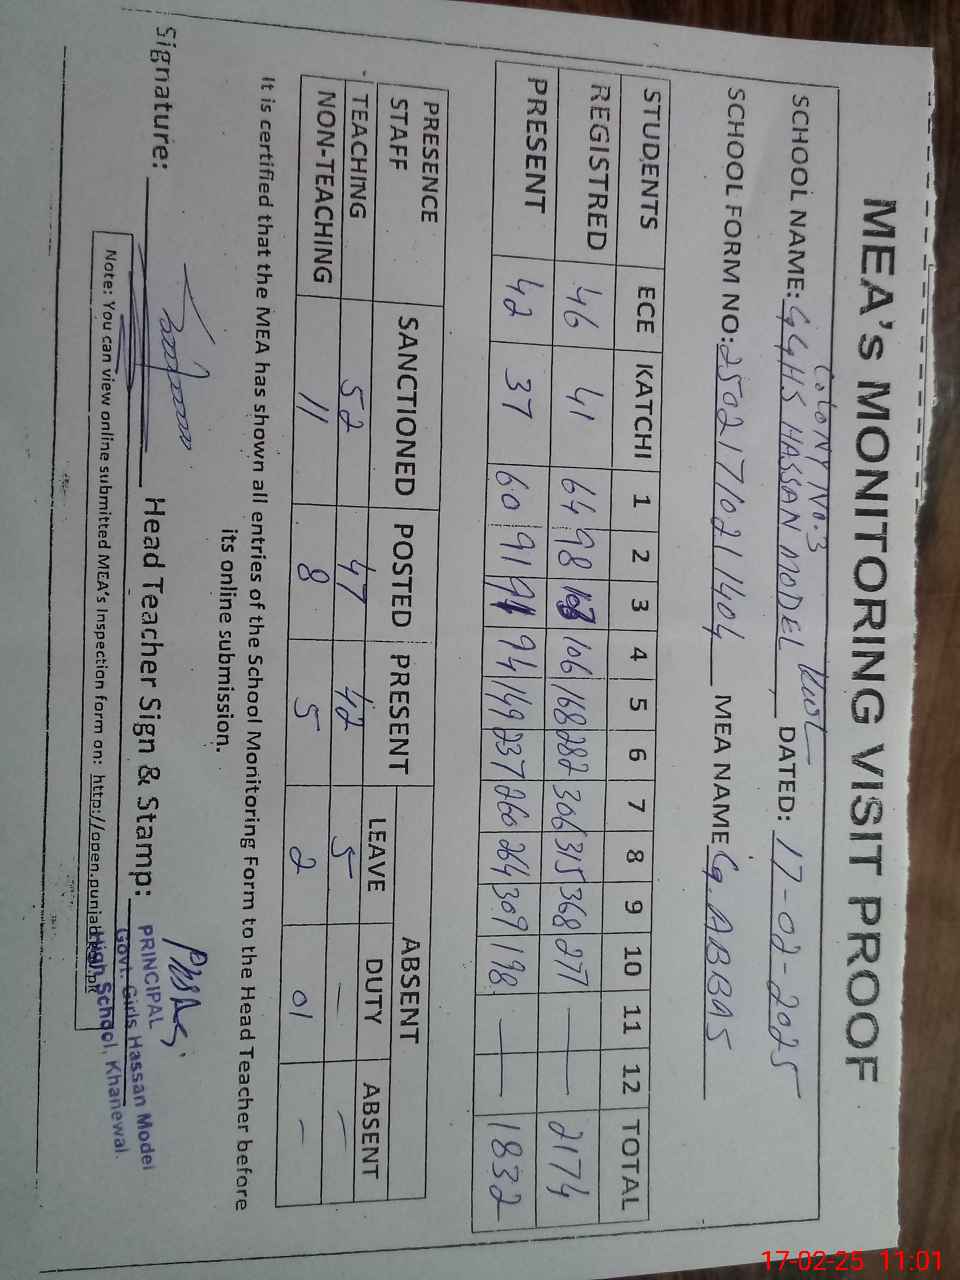 MEA's MONITORING VISIT PROOF
Colony No.3 KWL
SCHOOL NAME: GGHS HASSAN MODEL, DATED: 17-02-2025
SCHOOL FORM NO: 2502171021404 MEA NAME G. ABBAS
STUDENTS ECE KATCHI 1 2 3 4 5 6 7 8 9 10 11 12 TOTAL
REGISTRED 46 41 64 98 103 106 168 282 306 315 368 277 — — 2174
PRESENT 42 37 60 91 91 94 149 237 260 264 309 198 — — 1832
PRESENCE SANCTIONED POSTED PRESENT ABSENT
STAFF LEAVE DUTY ABSENT
TEACHING 52 47 42 5 — —
NON-TEACHING 11 8 5 2 01 —
It is certified that the MEA has shown all entries of the School Monitoring Form to the Head Teacher before
its online submission.
Signature: Head Teacher Sign & Stamp:
PRINCIPAL
Govt. Girls Hassan Model
High School, Khanewal.
Note: You can view online submitted MEA's Inspection form on: http://open.punjab.gov.pk
17-02-25 11:01